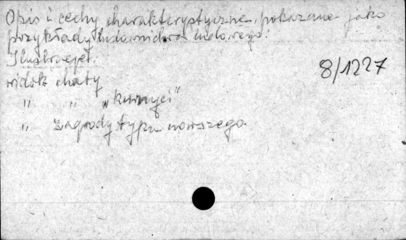 Opis i cechy charakterystyczne, pokazane jako
przykłady budownictwa ludowego.
Ilustracje:
8/1227
widok chaty
" " "kurnej"
" zagrody typu nowszego